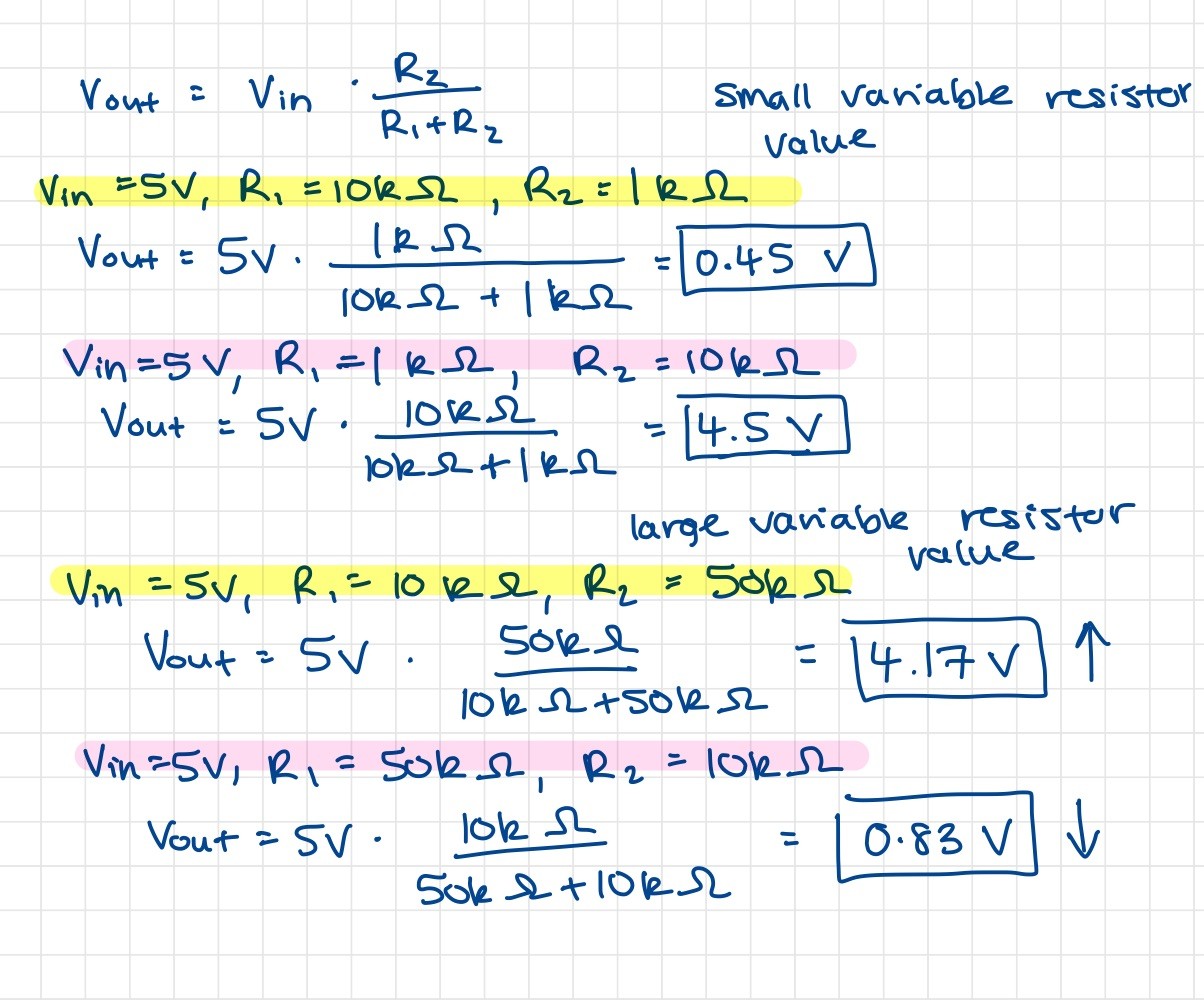 Vout = Vin · R₂/(R₁+R₂)
small variable resistor
value
Vin = 5V, R₁ = 10kΩ, R₂ = 1kΩ
Vout = 5V · 1kΩ/(10kΩ + 1kΩ) = 0.45 V
Vin = 5V, R₁ = 1kΩ, R₂ = 10kΩ
Vout = 5V · 10kΩ/(10kΩ + 1kΩ) = 4.5 V
large variable resistor
value
Vin = 5V, R₁ = 10kΩ, R₂ = 50kΩ
Vout = 5V · 50kΩ/(10kΩ + 50kΩ) = 4.17 V ↑
Vin = 5V, R₁ = 50kΩ, R₂ = 10kΩ
Vout = 5V · 10kΩ/(50kΩ + 10kΩ) = 0.83 V ↓